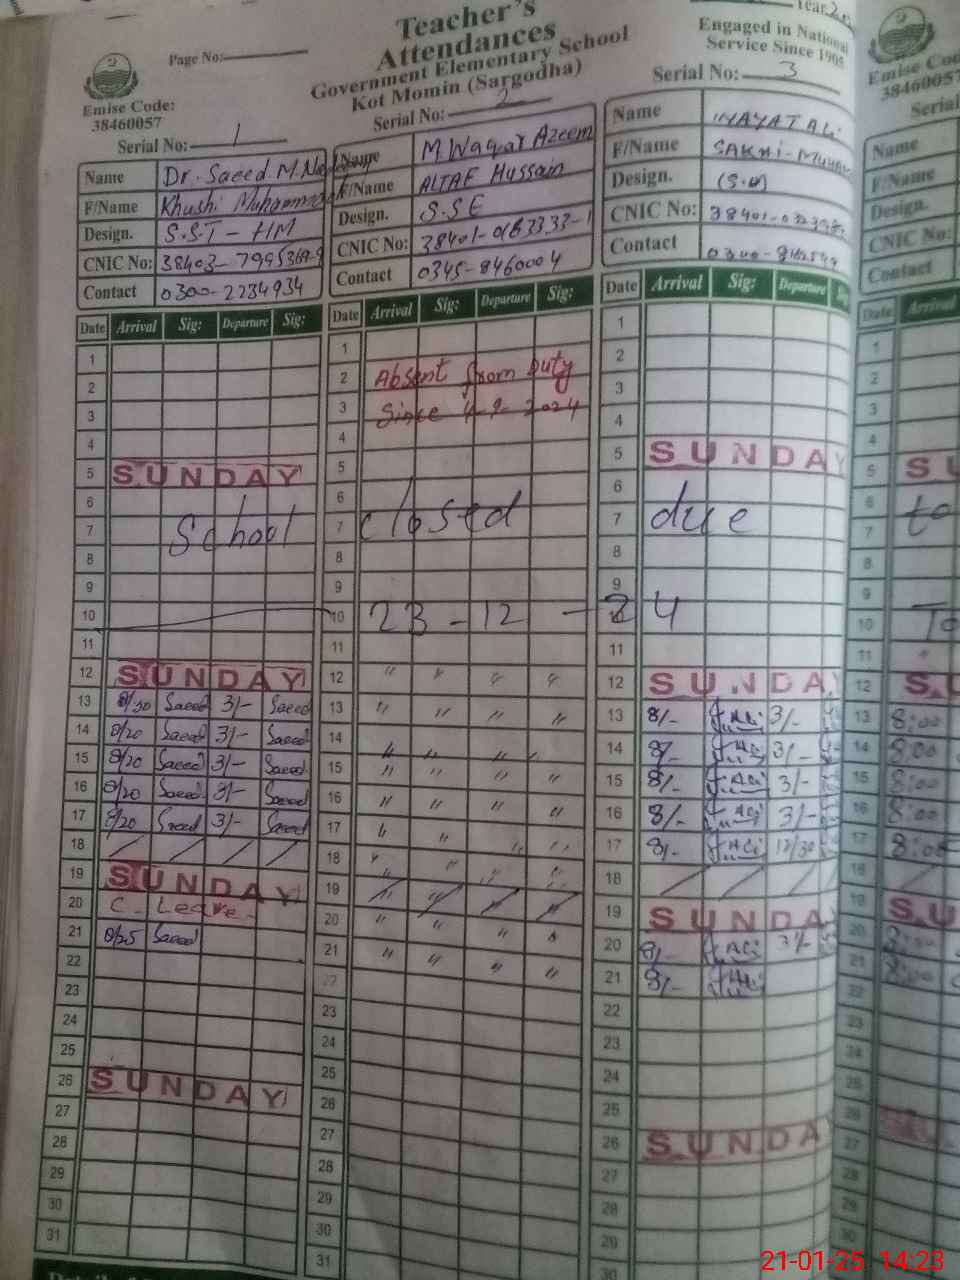 Teacher's
Attendances
Government Elementary School
Kot Momin (Sargodha)
Page No:
Engaged in National
Service Since 1905
Emise Code:
38460057
Serial No: 1
Name Dr. Saeed M.
F/Name Khushi Muhammad
Design. S.S.T - HM
CNIC No:
Contact 0300-2234934
Serial No: 2
Name M. Waqar Azeem
F/Name ALTAF Hussain
Design. S.S.E
CNIC No:
Contact 0345-8460004
Serial No: 3
Name INAYAT ALi
F/Name SAKHI-
Design.
CNIC No:
Contact
Date Arrival Sig: Departure Sig:
1
2
3
4
5 SUNDAY
6
7 School
8
9
10
11
12 SUNDAY
13 Saeed 3/- Saeed
14 8/20 Saeed 3/- Saeed
15 8/20 Saeed 3/- Saeed
16 8/20 Saeed 3/- Saeed
17 8/20 Saeed 3/- Saeed
18 / / / /
19 SUNDAY
20 C. Leave
21 8/25 Saeed
22
23
24
25
26 SUNDAY
27
28
29
30
31
Date Arrival Sig: Departure Sig:
1
2 Absent from Duty
3 Since 4-9-2024
4
5
6
7 closed
8
9
10 23-12-24
11
12 " " " "
13 " " " "
14 " " " "
15 " " " "
16 " " " "
17 " " " "
18 " " " "
19 " " " "
20 " " " "
21 " " " "
22
23
24
25
26
27
28
29
30
31
Date Arrival Sig: Departure
1
2
3
4
5 SUNDAY
6
7 due
8
9
10
11
12 SUNDAY
13 8/- 3/-
14 8/- 3/-
15 8/- 3/-
16 8/- 3/-
17 8/- 12/30
18 / / / /
19 SUNDAY
20 8/- 3/-
21 8/-
22
23
24
25
26 SUNDAY
27
28
29
30
Emise Code
3846005
Serial
Name
F/Name
Design.
CNIC No:
Contact
Date Arrival
1
2
3
4
5 SU
6
7 to
8
9
10 To
11 "
12 SU
13 8:00
14 8:00
15 8:00
16 8:00
17 8:00
18 /
19 SU
20
21 8:00
22
23
24
25
26
27
28
29
30
21-01-25 14:23